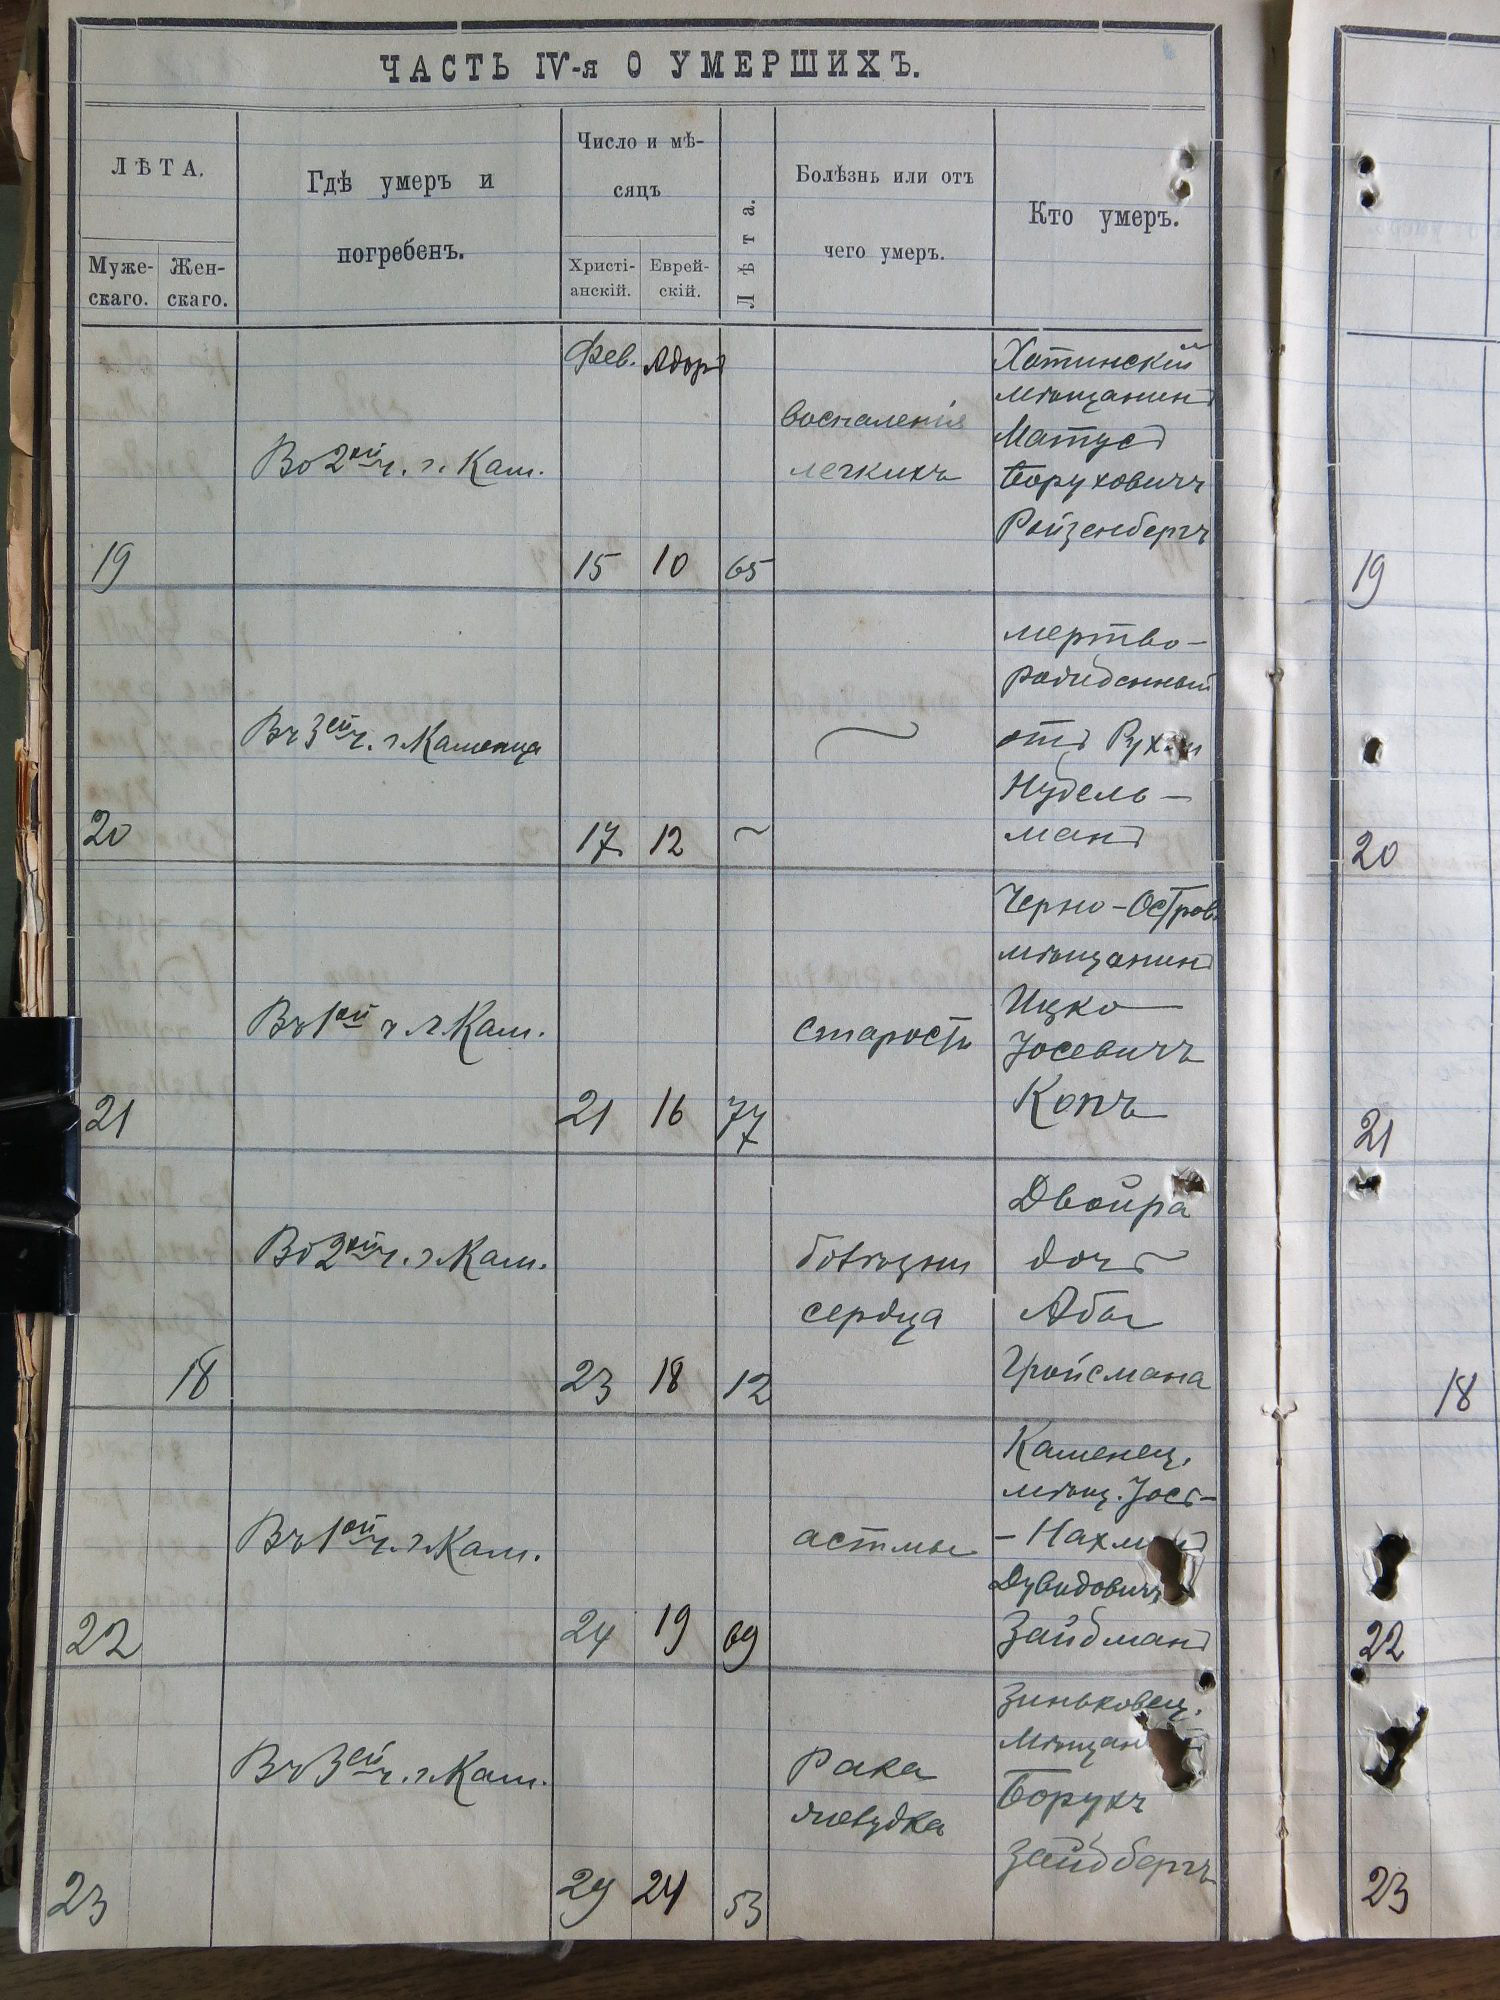 ЧАСТЬ IV-я О УМЕРШИХЪ.
ЛѢТА.
Муже-
скаго.
Жен-
скаго.
Гдѣ умеръ и
погребенъ.
Число и мѣ-
сяцъ
Христі-
анскій.
Еврей-
скій.
Лѣта.
Болѣзнь или отъ
чего умеръ.
Кто умеръ.
Фев. Адоръ
19
Во 2ой ч. г. Кам.
15 10 65
воспаленія
легкихъ
Хотинскій
мѣщанинъ
Матусъ
Боруховичъ
Ройзенбергъ
19
20
Въ 3ей ч. г Каменца
17 12 ~
~
мертво-
рожденный
отъ
Нудель-
манъ
20
21
Въ 1ой ч г. Кам.
21 16 77
старость
Черно-Остров.
мѣщанинъ
Ицко
Іосевичъ
Копъ
21
18
Во 2ой ч. г. Кам.
23 18 12
болѣзни
сердца
Двойра
дочь
Абы
Гройсмана
18
22
Въ 1ой ч. г. Кам.
24 19 69
астмы
Каменец.
мѣщ. Іось-
-Нахманъ
Дувидовичъ
Зайдманъ
22
23
Въ 3ей ч. г. Кам.
29 24 53
Рака
желудка
Зиньковец.
мѣщан
Борухъ
Зайдбергъ
23